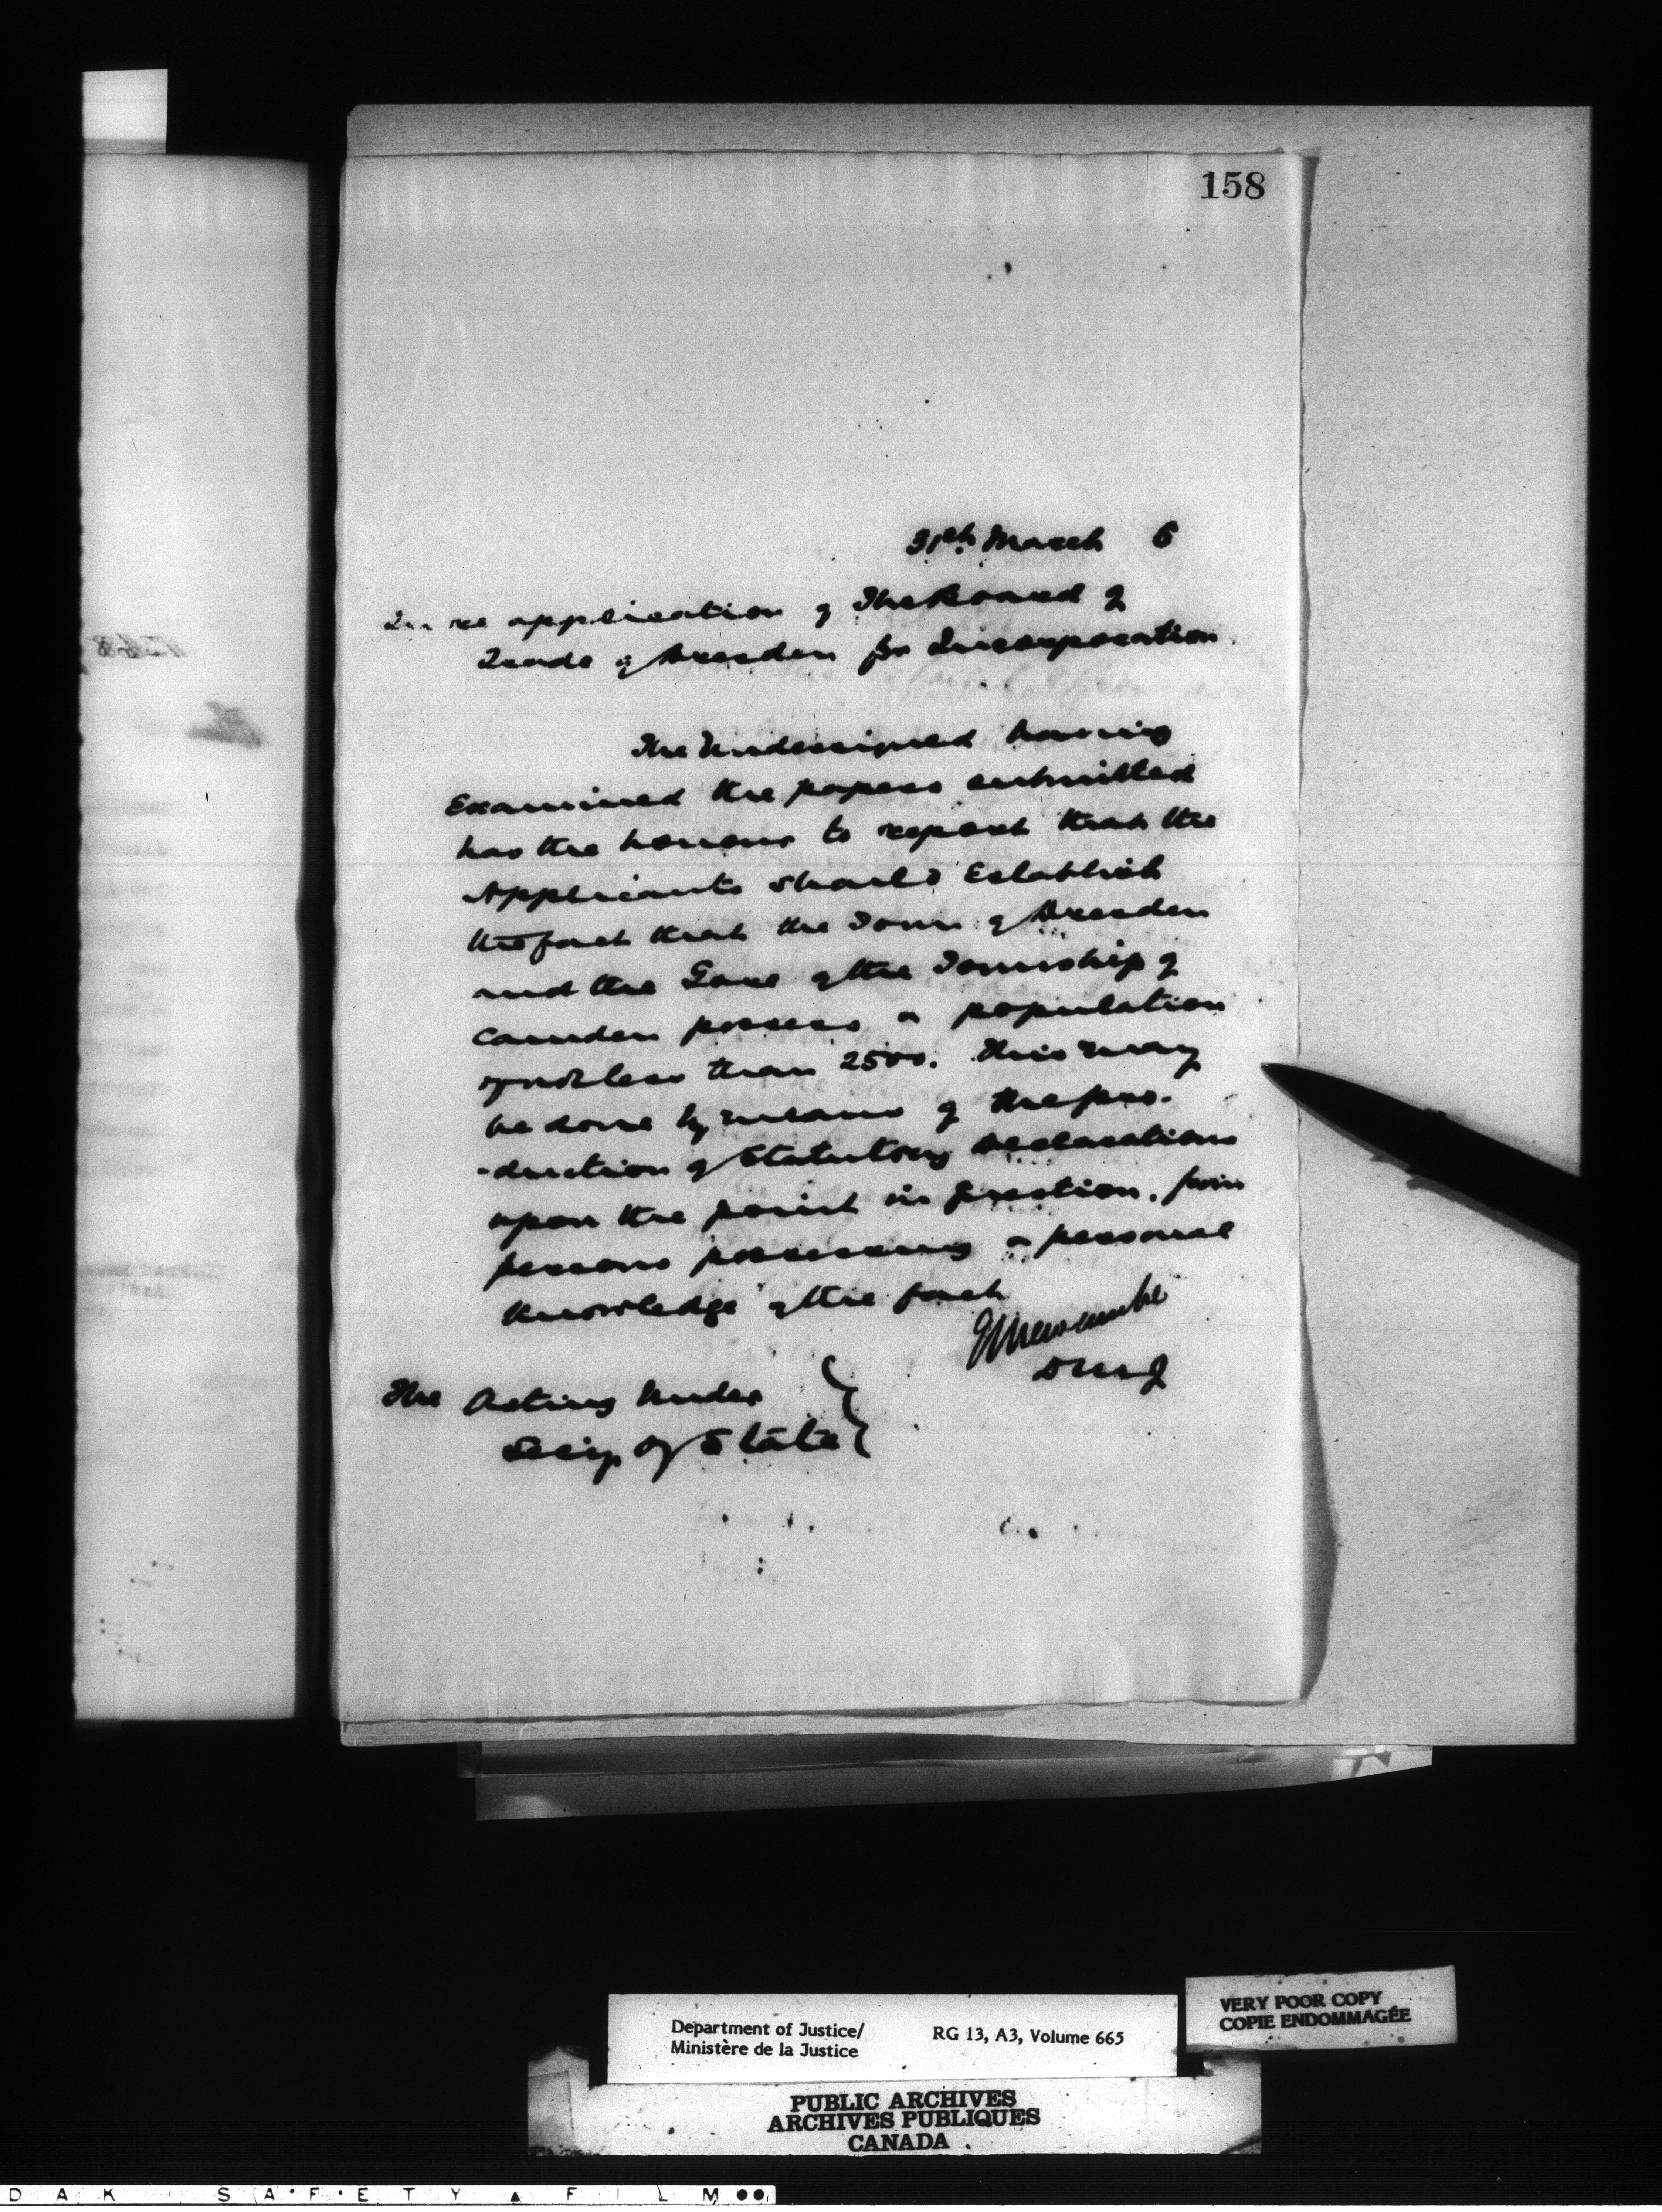 158
31st March 6
In re application of The Board of
Trade of Dresden for Incorporation.
The Undersigned having
Examined the papers submitted
has the honour to report that the
Applicants should Establish
the fact that the Town of Dresden
and the Gore of the Township of
Camden possess a population
of not less than 2500. This may
be done by means of the pro-
-duction of Statutory Declarations
upon the point in question, from
persons possessing a personal
knowledge of the fact
E L Newcombe
D M J
The Acting Under
Secy of State
Department of Justice/
Ministère de la Justice
RG 13, A3, Volume 665
VERY POOR COPY
COPIE ENDOMMAGÉE
PUBLIC ARCHIVES
ARCHIVES PUBLIQUES
CANADA
DAK SAFETY FILM